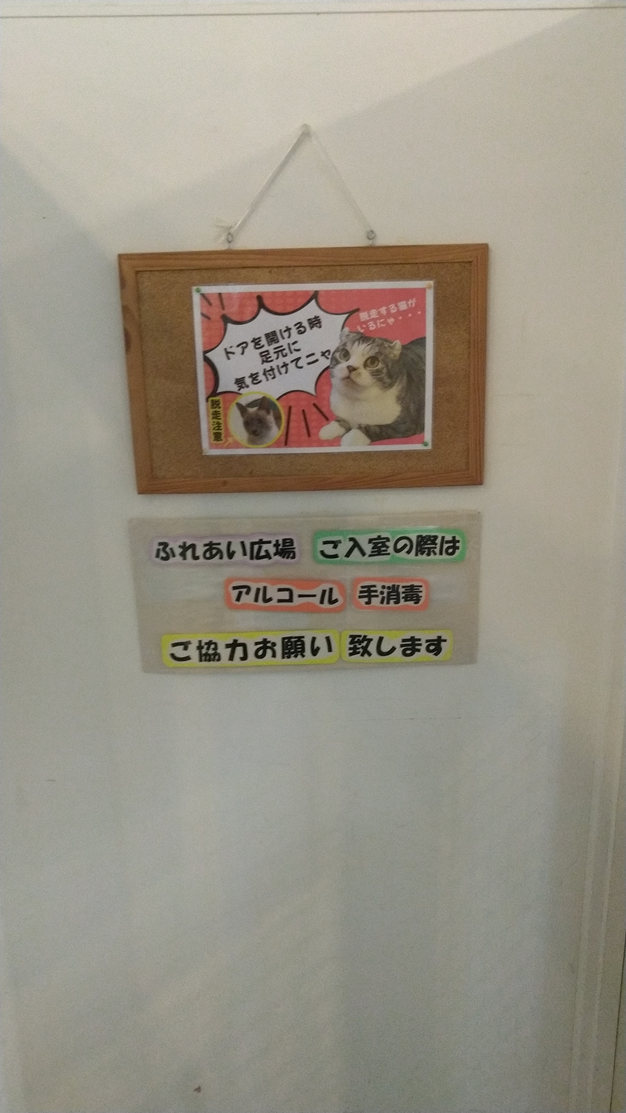 ドアを開ける時
足元に
気を付けてニャ
脱走する猫が
いるにゃ・・・
脱走注意
ふれあい広場 ご入室の際は
アルコール 手消毒
ご協力お願い 致します